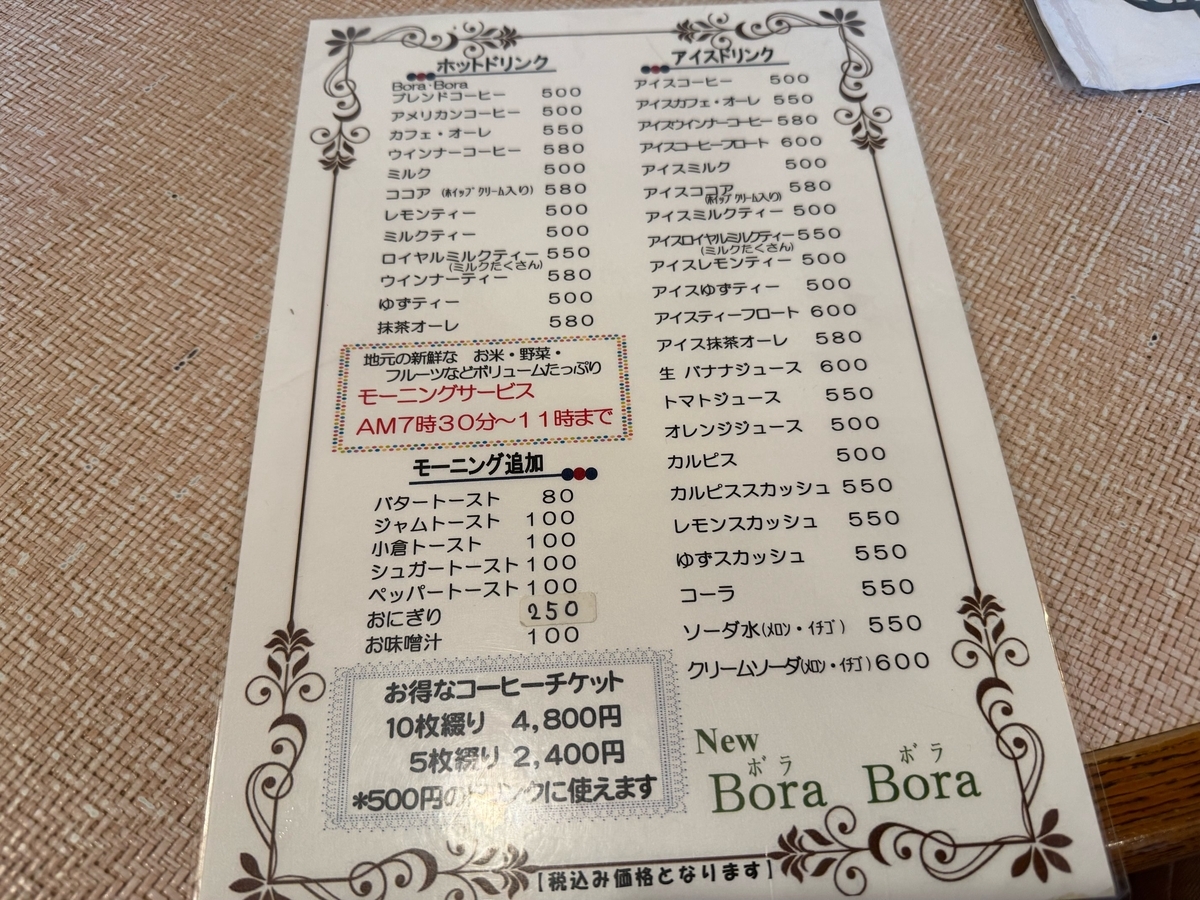 ホットドリンク
Bora・Bora
ブレンドコーヒー 500
アメリカンコーヒー 500
カフェ・オーレ 550
ウインナーコーヒー 580
ミルク 500
ココア (ホイップクリーム入り) 580
レモンティー 500
ミルクティー 500
ロイヤルミルクティー 550
(ミルクたくさん)
ウインナーティー 580
ゆずティー 500
抹茶オーレ 580
地元の新鮮な お米・野菜・
フルーツなどボリュームたっぷり
モーニングサービス
AM7時30分〜11時まで
モーニング追加
バタートースト 80
ジャムトースト 100
小倉トースト 100
シュガートースト 100
ペッパートースト 100
おにぎり 250
お味噌汁 100
お得なコーヒーチケット
10枚綴り 4,800円
5枚綴り 2,400円
*500円のドリンクに使えます
アイスドリンク
アイスコーヒー 500
アイスカフェ・オーレ 550
アイスウインナーコーヒー 580
アイスコーヒーフロート 600
アイスミルク 500
アイスココア 580
(ホイップクリーム入り)
アイスミルクティー 500
アイスロイヤルミルクティー 550
(ミルクたくさん)
アイスレモンティー 500
アイスゆずティー 500
アイスティーフロート 600
アイス抹茶オーレ 580
生 バナナジュース 600
トマトジュース 550
オレンジジュース 500
カルピス 500
カルピススカッシュ 550
レモンスカッシュ 550
ゆずスカッシュ 550
コーラ 550
ソーダ水(メロン・イチゴ) 550
クリームソーダ(メロン・イチゴ) 600
New
ボラ ボラ
Bora Bora
【税込み価格となります】